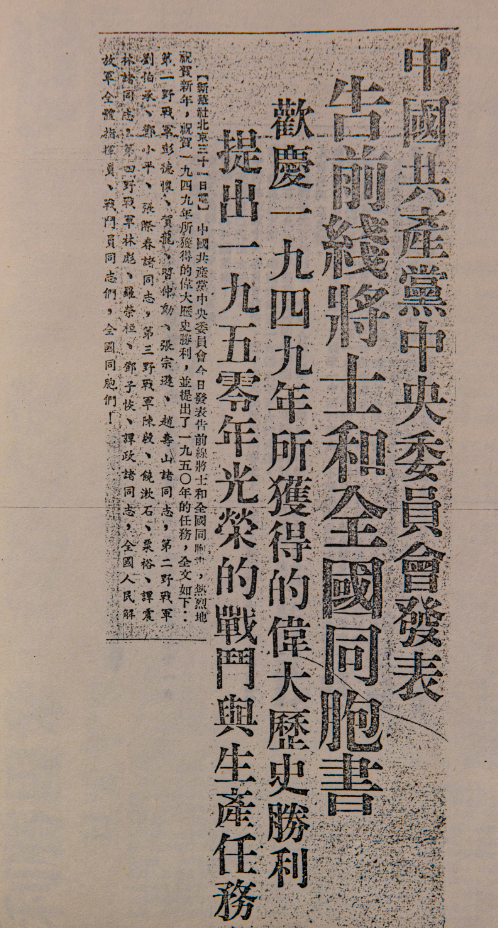 中國共產黨中央委員會發表
告前綫將士和全國同胞書
歡慶一九四九年所獲得的偉大歷史勝利
提出一九五零年光榮的戰鬥與生產任務
【新華社北京三十一日電】中國共產黨中央委員會今日發表告前線將士和全國同胞書，熱烈地
祝賀新年，祝賀一九四九年所獲得的偉大歷史勝利，並提出了一九五〇年的任務，全文如下：
第一野戰軍彭德懷、賀龍、習仲勛、張宗遜、趙壽山諸同志，第二野戰軍
劉伯承、鄧小平、張際春諸同志，第三野戰軍陳毅、饒漱石、粟裕、譚震
林諸同志，第四野戰軍林彪、羅榮桓、鄧子恢、譚政諸同志，全國人民解
放軍全體指揮員、戰鬥員同志們，全國同胞們！